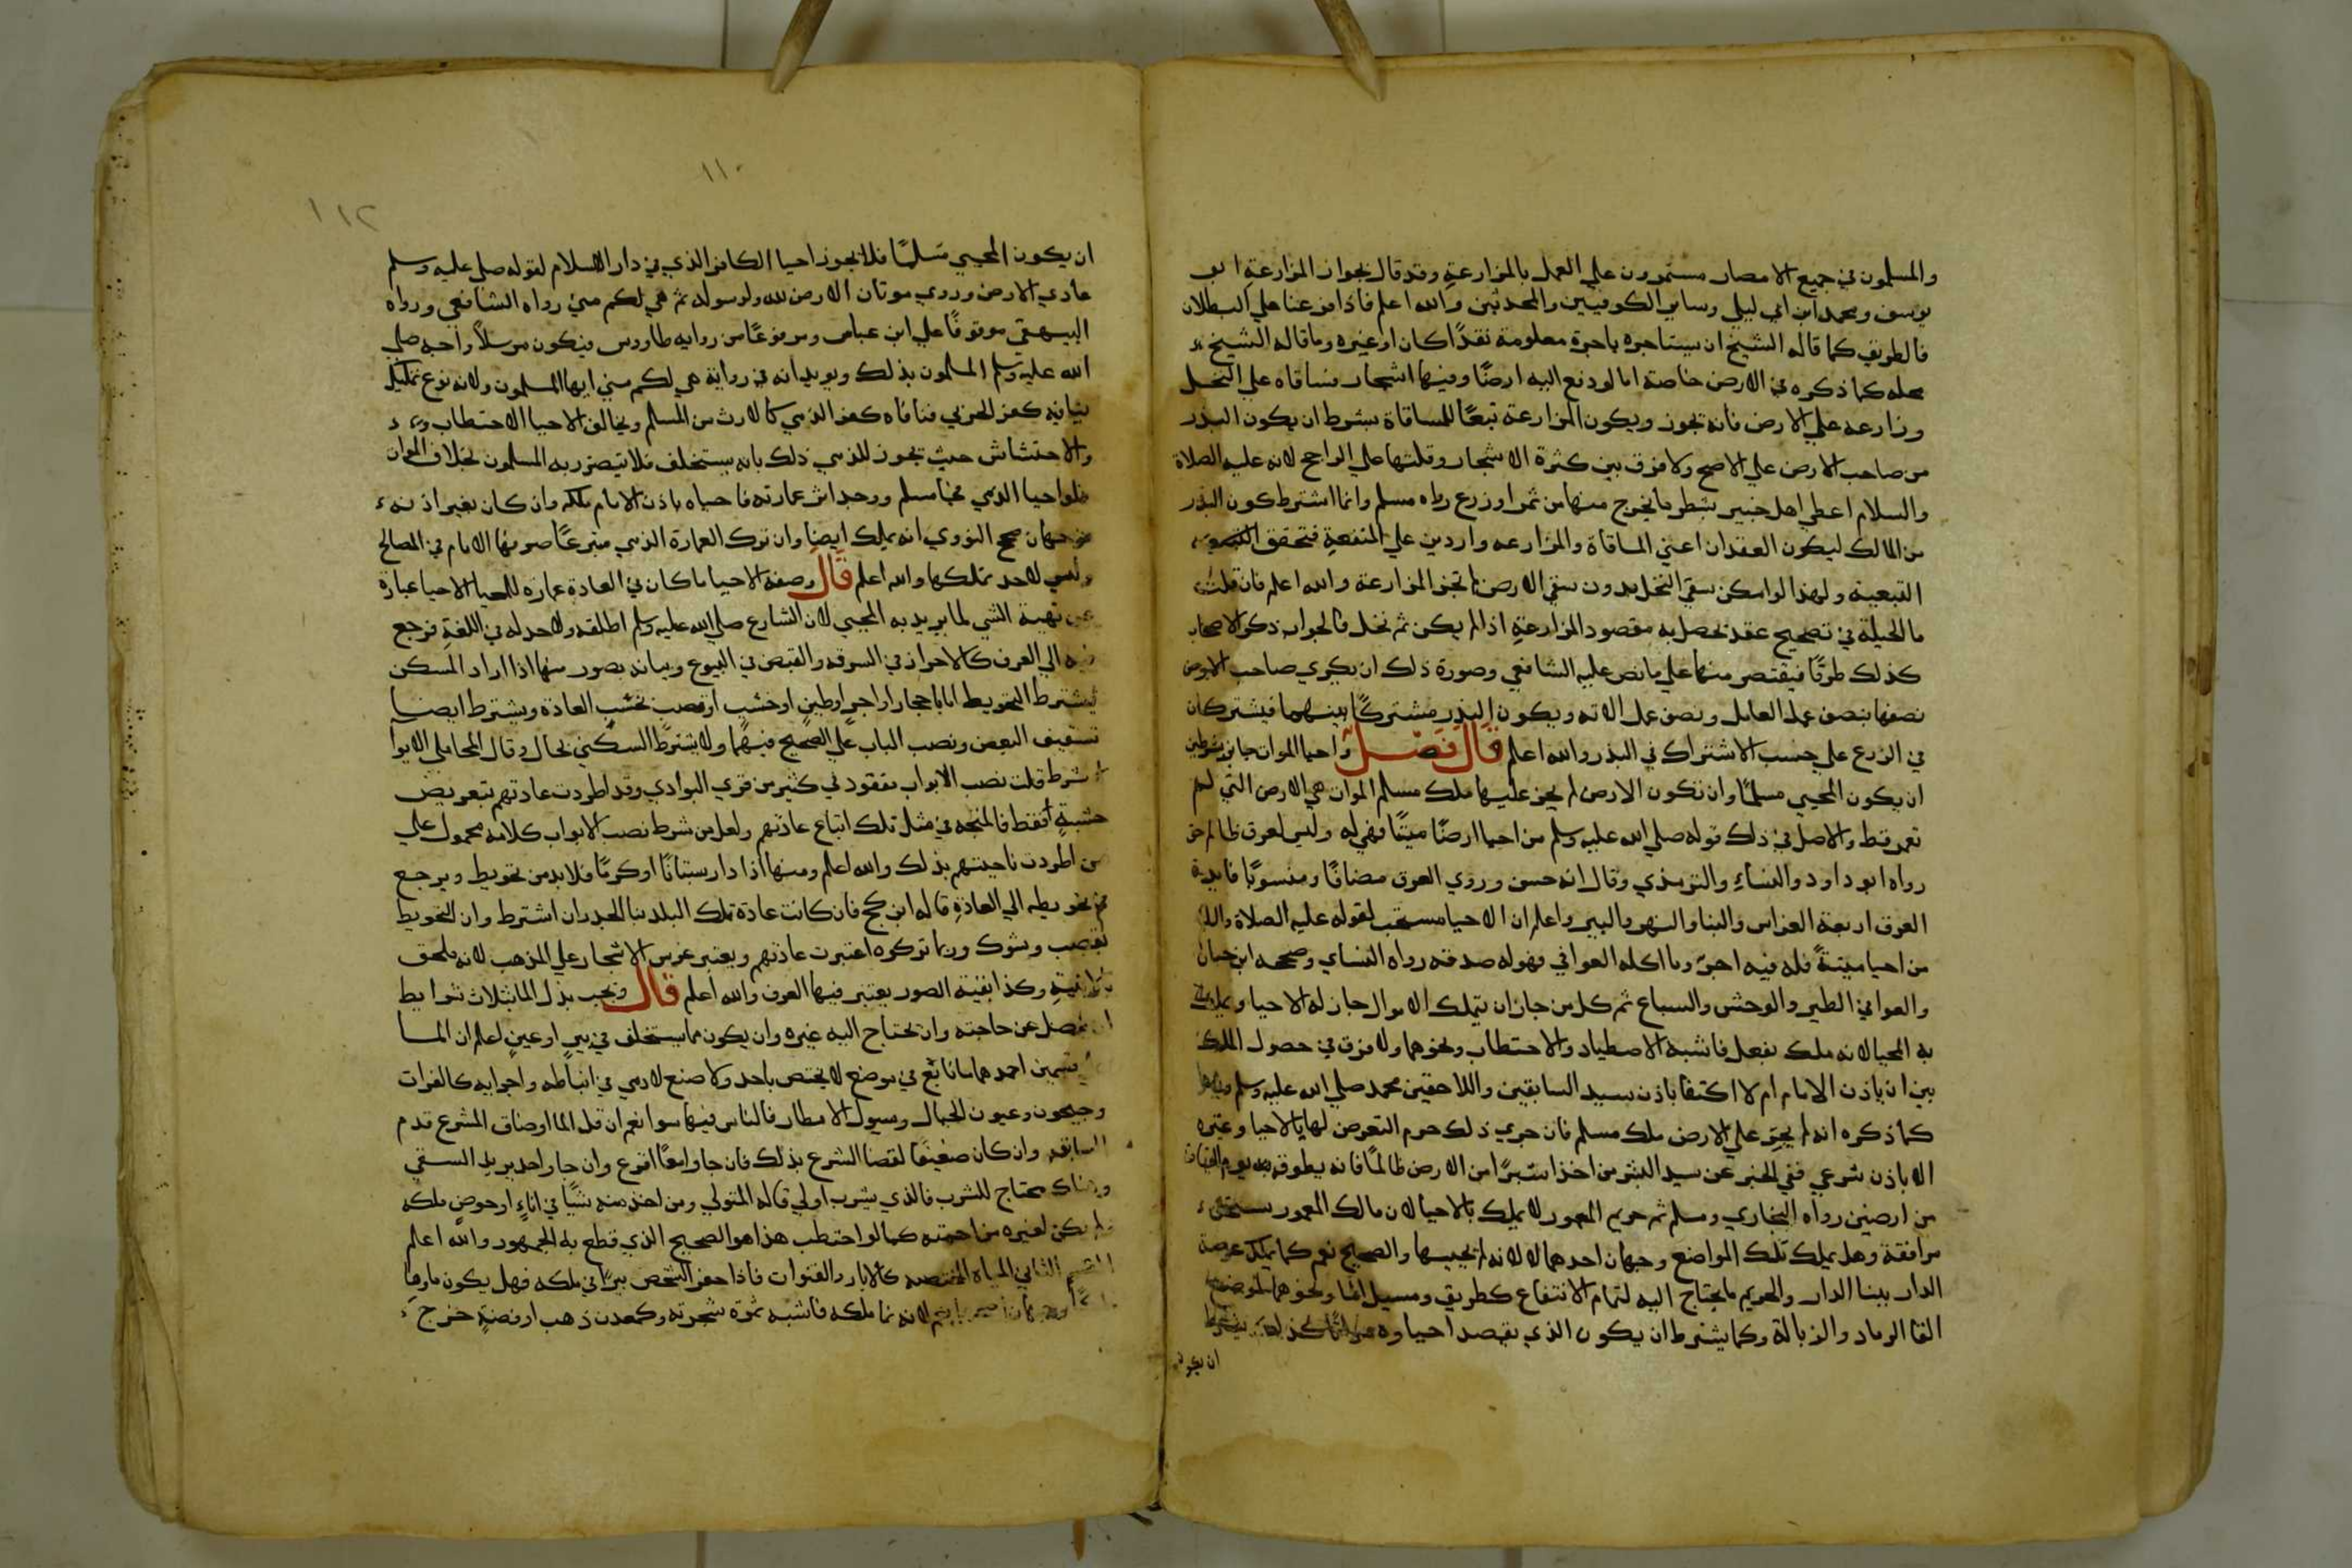 والمسلمون في جميع الامصار مستمرون علي العمل بالمزارعة وقد قال بجواز المزارعة ابو
يوسف ومحمد ابن ابي ليلي وساير الكوفيين والمحدثين والله اعلم فاذا فرعنا علي البطلان
فالطريق كما قاله الشيخ ان يستاجره باجرة معلومة نقدًا كان او غيره وما قاله الشيخ
محله كما ذكره في الارض خاصة اما لو دفع اليه ارضًا وفيها اشجار فساقاه علي النخل
وزارعه علي الارض فانه تجوز ويكون المزارعة تبعًا للمساقاة بشرط ان يكون البذر
من صاحب الارض علي الاصح ولا فرق بين كثرة الاشجار وقلتها علي الراجح لانه عليه الصلاة
والسلام اعطي اهل خيبر بشطر ما يخرج منها من ثمر او زرع رواه مسلم وانما اشترط كون البذر
من المالك ليكون العقدان اعني المساقاة والمزارعه واردين علي المنفعة فتحقق
التبعية ولهذا لو امكن سقي النخل بدون سقي الارض لم تجز المزارعة والله اعلم فان قلت
ما الحيلة في تصحيح عقد تحصل به مقصود المزارعة اذا لم يكن ثم نخل فالجواب ذكر الاصحاب
كذلك طرقًا فيقتصر منها علي ما نص عليه الشافعي وصورة ذلك ان يكري صاحب الارض
نصفها بنصف عمل العامل ونصف عمل الاته ويكون البذر مشتركًا بينهما فيشتركان
في الزرع علي حسب الاشتراك في البذر والله اعلم قال فصل واحيا الموات جايز بشرطين
ان يكون المحيي مسلمًا وان تكون الارض لم يجر عليها ملك مسلم الموات هي الارض التي لم
تعمر قط والاصل في ذلك قوله صلي الله عليه وسلم من احيا ارضًا ميتًا فهي له وليس لعرق ظالم حق
رواه ابو داود والنسائ والترمذي وقال انه حسن وروي العرق مضافًا ومنسوبًا فايدة
العرق اربعة الغراس والبنا والنهر والبير واعلم ان الاحيا مستحب لقوله عليه الصلاة والسلام
من احيا ميتةً فله فيه اجرٌ وما اكله العوافي فهو له صدقة رواه النساي وصححه ابن حبان
والعوافي الطير والوحش والسباع ثم كل من جاز ان يتملك الاموال جاز له الاحيا ويملك
به المحيا لانه ملك بفعل فاشبه الاصطياد والاحتطاب ونحوهما ولا فرق في حصول الملك
بين ان ياذن الامام ام لا اكتفا باذن سيد السابقين واللاحقين محمد صلي الله عليه وسلم
كما ذكره انه لم يجر علي الارض ملك مسلم فان جري ذلك حرم التعرض لها بالاحيا وغيره
الا باذن شرعي ففي الخبر عن سيد البشر من اخذ شبرًا من الارض ظالمًا فانه يطوقه يوم القيامة
من ارضين رواه البخاري ومسلم ثم حريم المعمور لا يملك بالاحيا لان مالك المعمور يستحق
مرافقه وهل يملك تلك المواضع وجهان احدهما لا لانه لم يحييها والصحيح نعم كما يملك عرصة
الدار ببنا الدار والحريم ما يحتاج اليه لتمام الانتفاع كطريق ومسيل الما ونحوهما
القا الرماد والزبالة وكما يشترط ان يكون الذي يقصد احياوه مواتًا كذلك يشترط
ان يكون
١١٠
١١٢
ان يكون المحيي مسلمًا فلا يجوز احيا الكافر الذي في دار الاسلام لقوله صلي عليه وسلم
عادي الارض وروي موتان الارض لله ولرسوله ثم هي لكم مني رواه الشافعي ورواه
البيهقي موقوفًا علي ابن عباس ومرفوعًا من روايه طاووس فيكون مرسلاً واجبه صلي
الله عليه وسلم المسلمون بذلك ويويد انه في رواية هي لكم مني ايها المسلمون ولانه نوع تمليك
ينافيه كفر الحربي فنافاه كفر الذمي كالارث من المسلم ويخالف الاحيا الاحتطاب
والاحتشاش حيث تجوز للذمي ذلك بانه يستخلف فلا يتضرر به المسلمون بخلاف الموات
فلو احيا الذمي فجا مسلم ووجد اثر عمارته فاحياه باذن الامام ملكه وان كان بغير اذنه
فوجهان صحح النووي انه يملك ايضا وان ترك العمارة الذمي متبرعًا صرفها الامام في المصالح
وليس لاحد تملكها والله اعلم قال وصفة الاحيا ما كان في العادة عمارة للمحيا الاحيا عبارة
عن تهيئة الشي لما يريد به المحيي لان الشارع صلي الله عليه وسلم اطلقه ولا حد له في اللغة فرجع
فيه الي العرف كالاحراز في السرقه والقبض في البيوع وبيانه بصور منها اذا اراد المسكن
يشترط التحويط اما باحجار او اجرٍ او طينٍ او خشب او قصب بحسب العادة ويشترط ايضا
تسقيف البعض ونصب الباب علي الصحيح فيهما ولا يشترط السكني بحال وقال المحاملي الابواب
لا تشرط قلت نصب الابواب مفقود في كثير من قري البوادي وقد اطردت عادتهم بتعريض
خشبةٍ فقط فالمتجه في مثل تلك اتباع عادتهم ولعل من شرط نصب الابواب كلامه محمول علي
من اطردت ناحيتهم بذلك والله اعلم ومنها اذا اراد بستانًا او كرمًا فلا بد من تحويط ويرجع
في تحويطه الي العادة قاله ابن كج فان كانت عادة تلك البلد بنا الجدران اشترط وان التحويط
بقصب وشوك وربما تركوه اعتبرت عادتهم ويعتبر غرس الاشجار علي المذهب لانه ملحق
بالابنية وكذا بقية الصور يعتبر فيها العرف والله اعلم قال ويجب بذل الما بثلاث شرايط
ان يفضل عن حاجته وان يحتاج اليه غيره وان يكون مما يستخلف في بيرٍ او عينٍ اعلم ان الما
قسمين احدهما ما نابع في موضع لا يختص باحد ولا صنع لادمي في انباطه واجرايه كالفرات
وجيحون وعيون الجبال وسيول الامطار فالناس فيها سوا نعم ان قل الما او ضاق المشرع قدم
السابق وان كان ضعيفًا لقضا الشرع بذلك فان جاوا معًا اقرع وان جا واحد يريد السقي
وهناك محتاج للشرب فالذي يشرب اولي قاله المتولي ومن اخذ منه شيًا في اناءٍ او حوضٍ ملكه
ولم يكن لغيره مزاحمته كما لو احتطب هذا هو الصحيح الذي قطع به الجمهور والله اعلم
القسم الثاني المياه المختصه كالابار والقنوات فاذا حفر الشخص بيرًا في ملكه فهل يكون ماوها
لانه نما ملكه فاشبه ثمرة شجرته وكمعدن ذهب او فضةٍ خرج